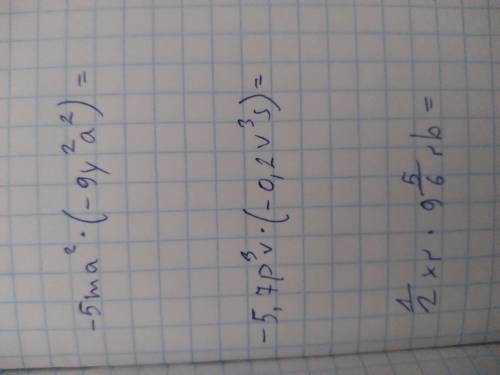 -5ma²·(-9y²a²)=
-5,7p³v·(-0,2v³s)=
1/2 xr·9 5/6 rb=